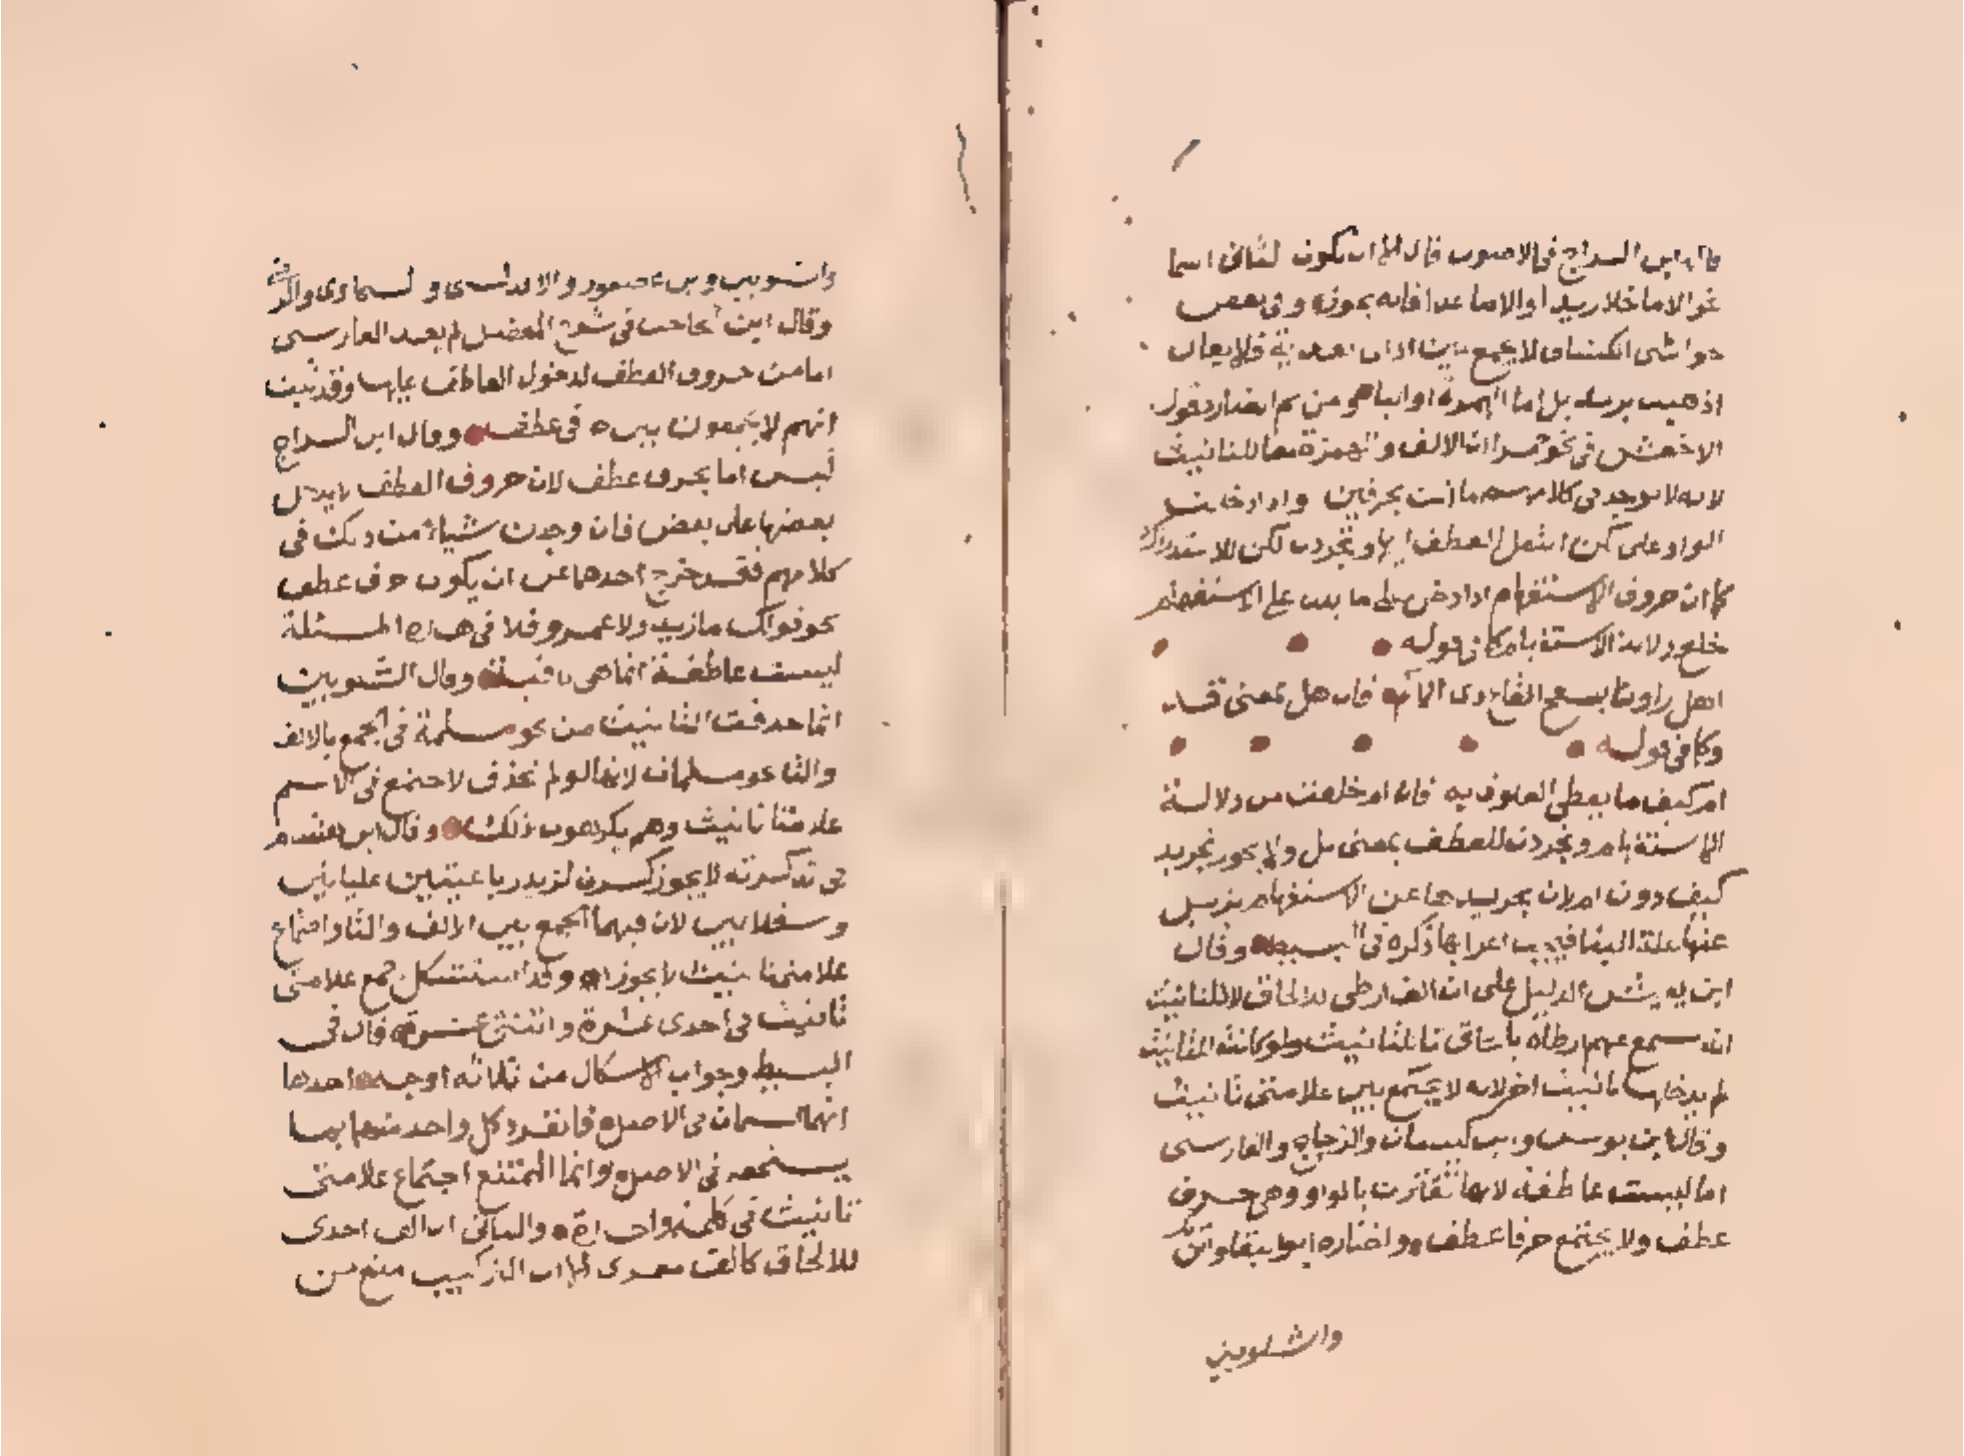 قاله ابن السراج في الاصول قال الا ان يكون الثاني اسما
نحو الا ما خلا زيدا والا ما عدا فانه يجوز وفي بعض
حواشي الكشاف لا يجمع بين اداتي تعدية فلا يقال
اذهبت بزيد بل اما الهمزة او الباء هو من ثم ايضا رد قول
الاخفش في نحو حمراء ان الالف والهمزة معا للتانيث
لانه لا يوجد في كلامهم ما انث بحرفين واذا دخلت
الواو على لكن انتقل العطف اليها وتجردت لكن للاستدراك
كما ان حروف الاستفهام اذا دخل على ما يدل على الاستفهام
خلع دلالة الاستفهام كما في قوله
اهل راونا بسفح القاع ذي الاكم فان هل بمعنى قد
وكما في قوله
ام كيف ما يعطي العلوق به فان ام خلعت من دلالة
الاستفهام وتجردت للعطف بمعنى بل ولا يجوز تجريد
كيف دون ام لان تجريدها عن الاستفهام يزيل
عنها علة البنا فيجب اعرابها ذكره في البسيط وقال
ابن يعيش الدليل على ان الف ارطى للالحاق لا للتانيث
انه سمع عنهم ارطاة بالحاق تا التانيث ولو كانت للتانيث
لم يدخلها تانيث اخر لانه لا يجتمع بين علامتي تانيث
وقال ابن يونس وابن كيسان والزجاج والفارسي
اما ليست عاطفة لانها تقترن بالواو وهي حرف
عطف ولا يجتمع حرفا عطف واختاره ابو البقا وابن مالك
والشلوبين
والشلوبين وابن عصفور والاندلسي والسخاوي والرضي
وقال ابن الحاجب في شرح المفصل لم يعد الفارسي
اما من حروف العطف لدخول العاطف عليها وقد ثبت
انهم لا يجمعون بينه في عطف وقال ابن السراج
ليس اما بحرف عطف لان حروف العطف لا يدخل
بعضها على بعض فان وجدت شيئا من ذلك في
كلامهم فقد خرج احدها عن ان يكون حرف عطف
نحو قولك ما زيد ولا عمرو فلا في هذه المسئلة
ليست عاطفة انما هي نافية وقال الشلوبين
انما حذفت التا نيث من نحو مسلمة في الجمع بالالف
والتا نحو مسلمات لانها لو لم تحذف لاجتمع في الاسم
علامتا تانيث وهم يكرهون ذلك وقال ابن هشام
في تذكرته لا يجوز كسرت لزيد رباعيتين عليايين
وسفلايين لان فيهما الجمع بين الالف والتا واجتماع
علامتي تانيث لا يجوز وقد استشكل جمع علامتي
تانيث في احدى عشرة واثنتي عشرة قال في
البسيط وجواب الاشكال من ثلاثة اوجه احدها
انهما اسمان في الاصل فانفرد كل واحد منهما بما
يستحقه في الاصل وانما الممتنع اجتماع علامتي
تانيث في كلمة واحدة والثاني ان الف احدى
للالحاق كالف معزى الا ان التركيب منع من